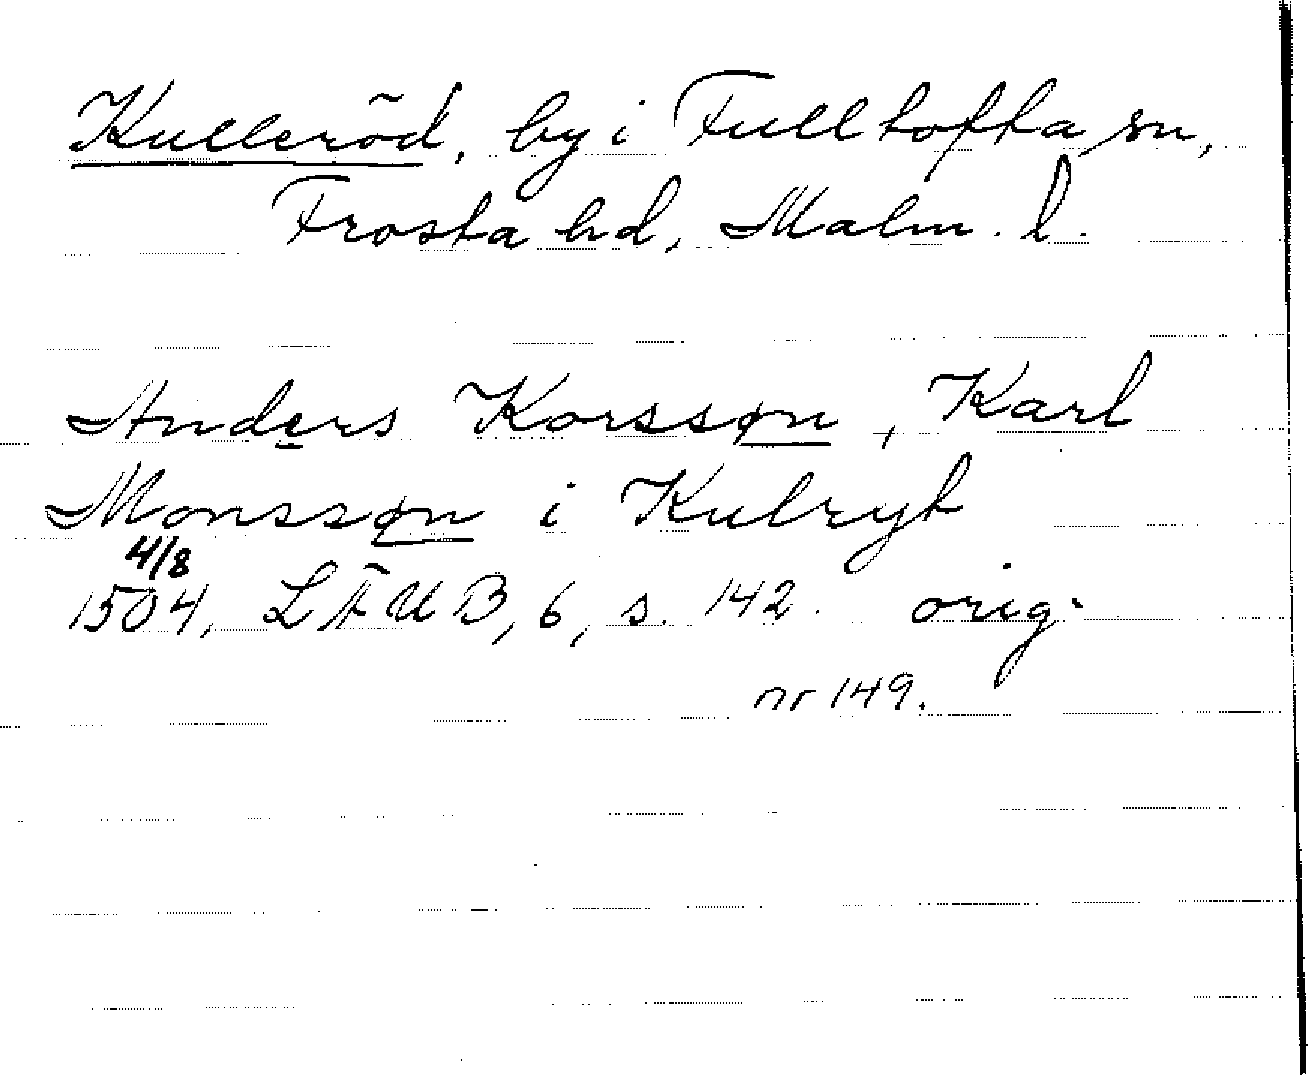 Kulleröd, by i Fulltofta sn,
Frosta hd, Malm. l.
Anders Korssøn, Karl
Monssøn i Kulryt
4/8
1504, LÄUB, 6, s. 142. orig.
nr 149.